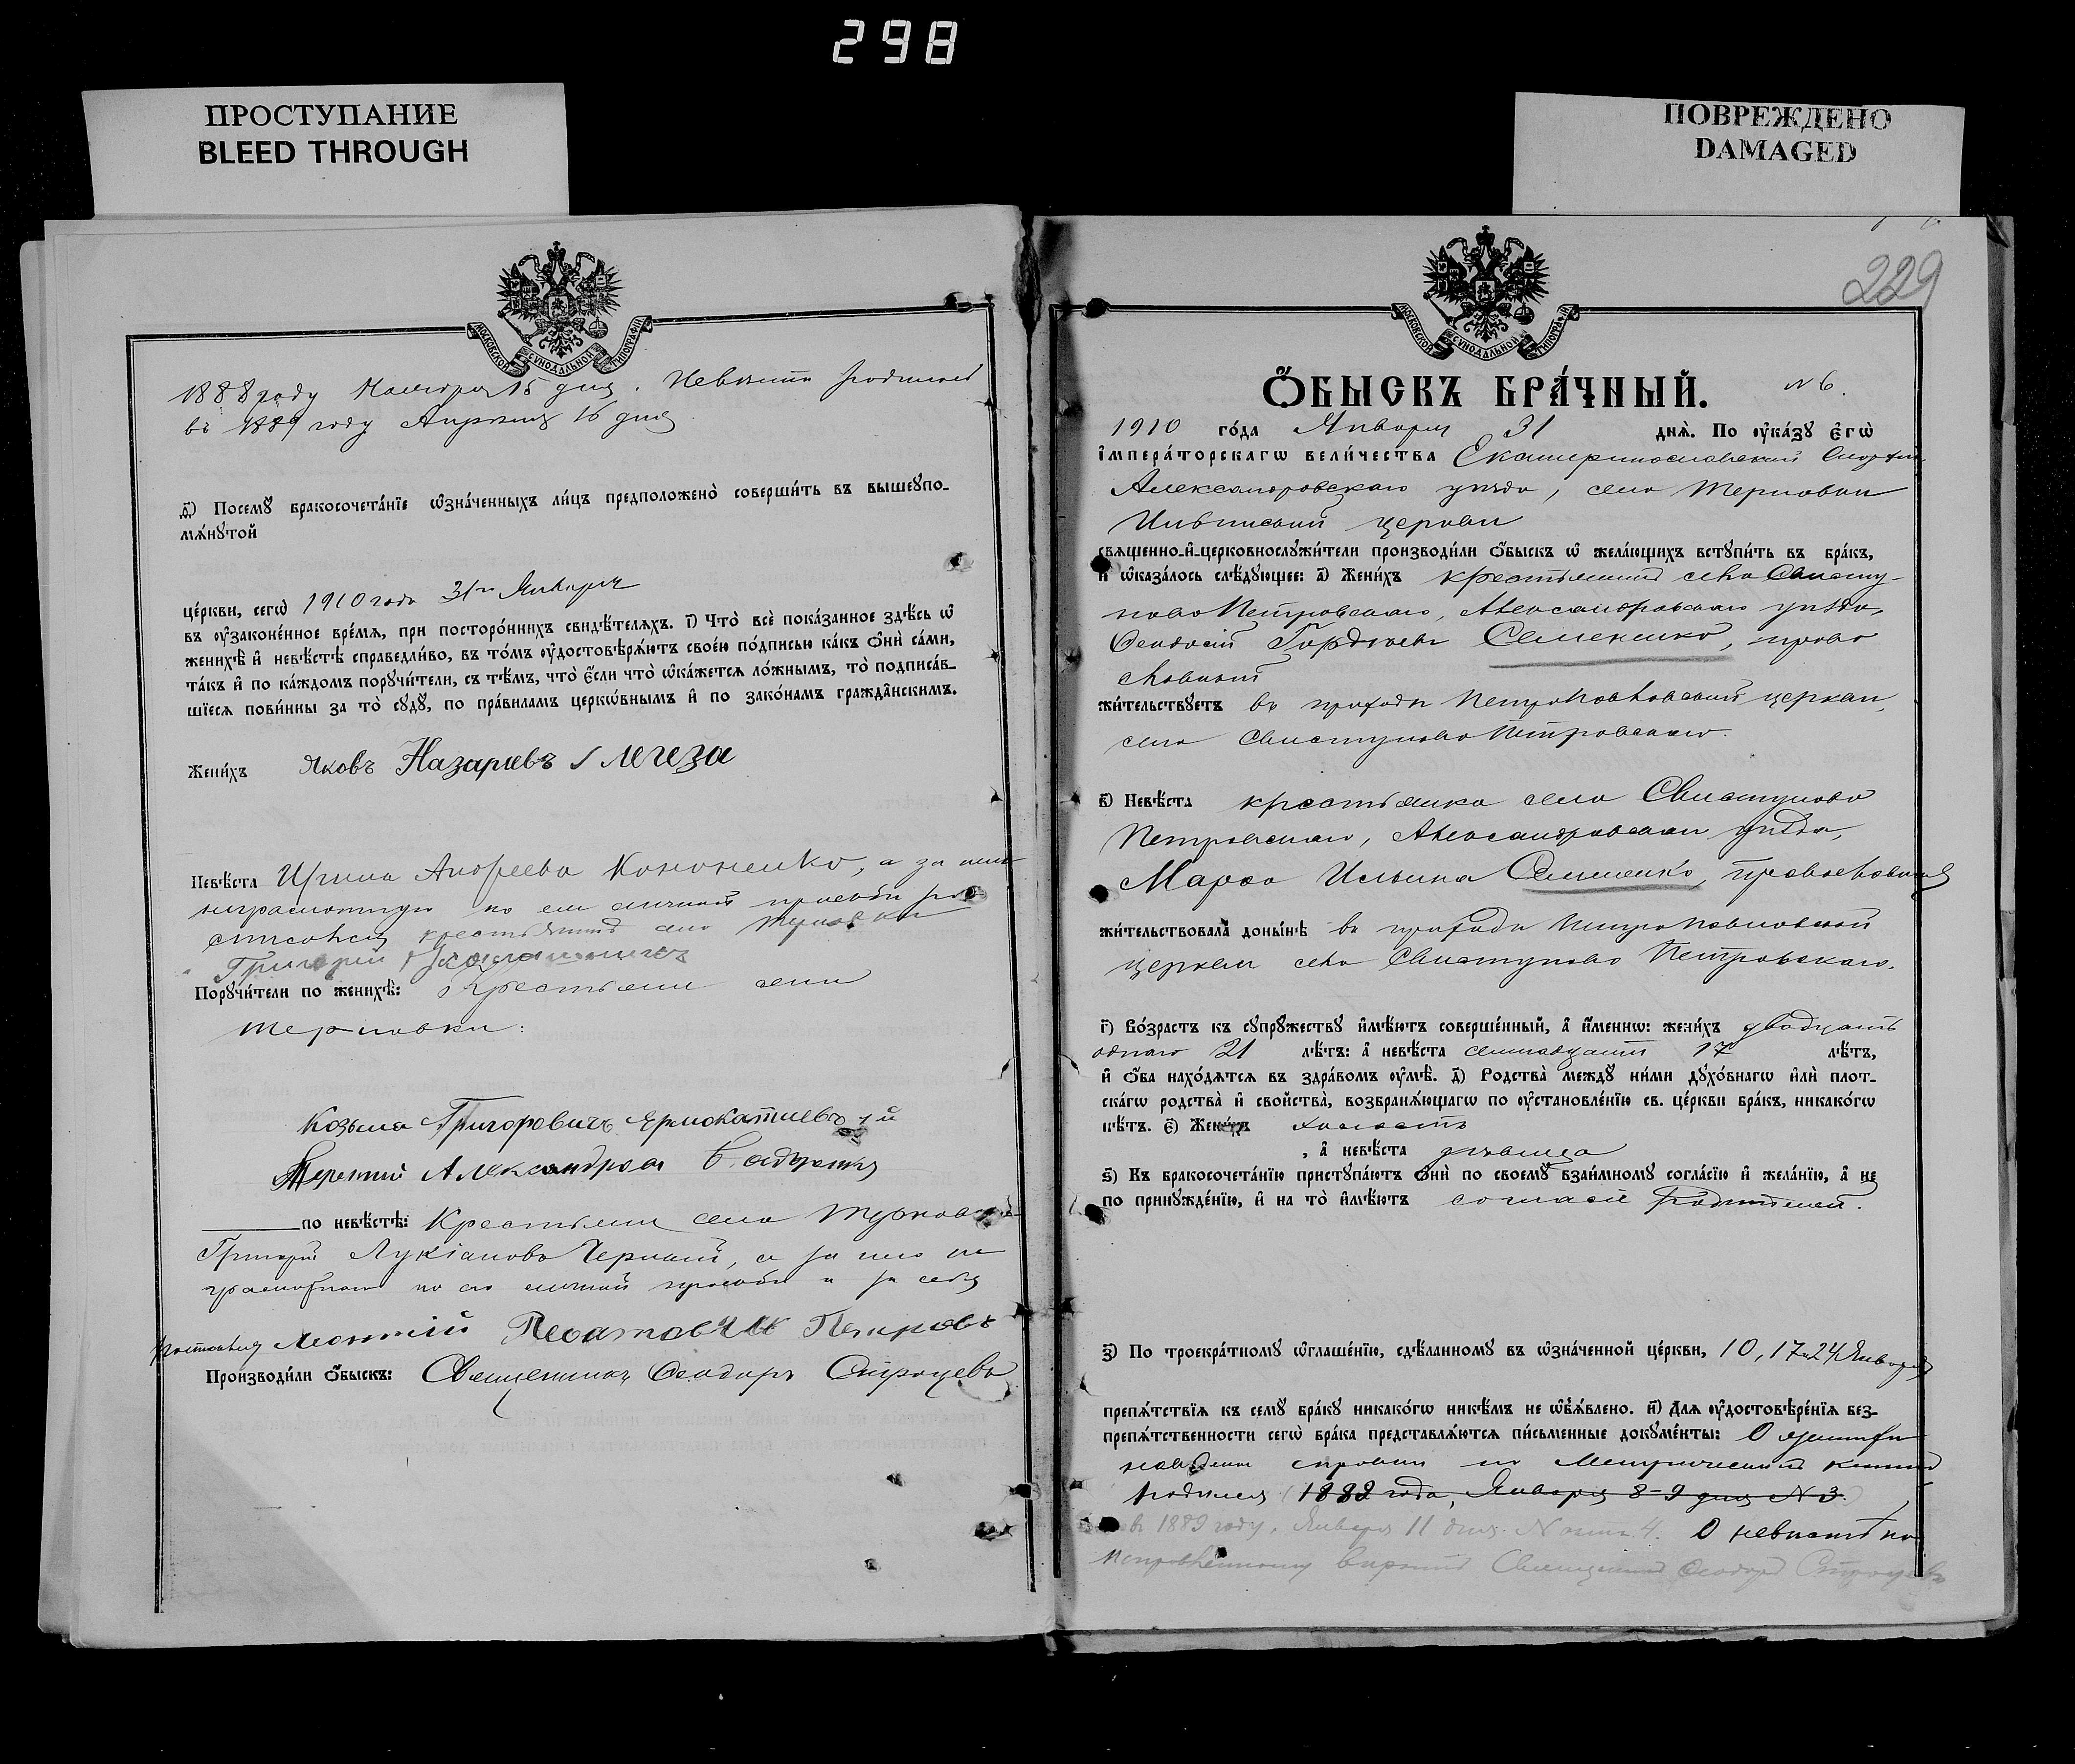 298
ПРОСТУПАНИЕ
BLEED THROUGH
ПОВРЕЖДЕНО
DAMAGED
МОСКОВСКОЙ СѴНОДАЛЬНОЙ ТИПОГРАФІИ
1888 году 15 дня. Невѣста родилась
въ 1889 году Апрѣля 16 дня
д҃) Посемꙋ бракосочета́нїе ѡ҆зна́ченныхъ ли́цъ предположено̀ соверши́ть въ вышеꙋпо-
мѧ́нꙋтой
це́ркви, сегѡ̀ 1910 года 31го Января
въ ᲂу҆зако́ненное вре́мѧ, при посторо́ннихъ свидѣ́телѧхъ. і҃) Что̀ всѐ пока́занное здѣ́сь ѡ҆
женихѣ̀ и҆ невѣ́стѣ справедли́во, въ то́мъ ᲂу҆достовѣрѧ́ютъ свое́ю по́дписью ка́къ ѻ҆нѝ са́ми,
та́къ и҆ по ка́ждомъ порꙋчи́тели, съ тѣ́мъ, что̀ є҆́сли что̀ ѡ҆ка́жетсѧ ло́жнымъ, то̀ подписа́в-
шїесѧ пови́нны за то̀ сꙋдꙋ̀, по пра́виламъ церко́внымъ и҆ по зако́намъ гражда́нскимъ.
Жени́хъ Яковъ Назарiевъ Легеза
Невѣ́ста Ирина Андреева Кононенко, а за нею
неграмотную по ея личной просьбѣ рос
писался крестьянинъ села Терновки
Григорій
Порꙋчи́тели по женихѣ̀: Крестьяне села
Терновки:
Козьма Григоровичъ
Терентій Александров
по невѣ́стѣ: Крестьяне села Терновки
Григорій Лукіановъ Черный, а за него не
грамотнаго по его личной просьбѣ и за себя
росписался Леонтій Петровъ
Производи́ли ѻ҆́быскъ: Священникъ Ѳеодоръ Строцевъ
229
МОСКОВСКОЙ СѴНОДАЛЬНОЙ ТИПОГРАФІИ
Ѻ҆́БЫСКЪ БРА́ЧНЫЙ. № 6.
1910 го́да Января 31 днѧ̀. По ᲂу҆ка́зꙋ є҆гѡ̀
і҆мпера́торскагѡ вели́чества Екатеринославской Епархіи
Александровскаго уѣзда, села Терновки
церкви
свѧщенно-и҆-церковнослꙋжи́тели производи́ли ѻ҆́быскъ ѡ҆ жела́ющихъ встꙋпи́ть въ бра́къ,
и҆ ѡ҆каза́лось слѣ́дꙋющее: а҃) Жени́хъ крестьянинъ села Свисту-
ново Петровскаго, Александровскаго уѣзда,
Ѳеодосій Гордѣевъ Семененко, право
славный
жи́тельствꙋетъ въ приходѣ Петропавловской церкви,
села Свистуново Петровскаго.
в҃) Невѣ́ста крестьянка села Свистуново
Петровскаго, Александровскаго уѣзда,
Марѳа Ильина Семненко, православная
жи́тельствовала доны́нѣ въ приходѣ Петропавловской
церкви села Свистуново Петровскаго.
г҃) Во́зрастъ къ сꙋпрꙋ́жествꙋ и҆мѣ́ютъ соверше́нный, а҆ и҆́менно: жени́хъ двадцать
одного 21 лѣ́тъ: а҆ невѣ́ста семнадцати 17 лѣ́тъ,
и҆ ѻ҆́ба нахо́дѧтсѧ въ здра́вомъ ᲂу҆мѣ̀. д҃) Родства̀ междꙋ̀ ни́ми дꙋхо́внагѡ и҆лѝ плот-
ска́гѡ родства̀ и҆ свойства̀, возбранѧ́ющагѡ по ᲂу҆становле́нїю св. це́ркви бра́къ, никако́гѡ
нѣ́тъ. є҃) Жени́хъ холостъ
, а҆ невѣ́ста дѣвица
ѕ҃) Къ бракосочета́нїю пристꙋпа́ютъ ѻ҆нѝ по своемꙋ̀ взаи́мномꙋ согла́сїю и҆ жела́нїю, а҆ не
по принꙋжде́нїю, и҆ на то̀ и҆мѣ́ютъ согласіе родителей.
з҃) По троекра́тномꙋ ѡ҆глаше́нїю, сдѣ́ланномꙋ въ ѡ҆зна́ченной це́ркви, 10, 17 и 24 Января
препѧ́тствїѧ къ семꙋ̀ бра́кꙋ никако́гѡ никѣ́мъ не ѡ҆б̾ѧ́влено. и҃) Длѧ ᲂу҆достовѣре́нїѧ без-
препѧ́тственности сегѡ̀ бра́ка представлѧ́ютсѧ пи́сьменные докꙋме́нты: О женихѣ
наведены справки по Метрическимъ книгамъ
родился (1882 года, Января 8-9 дня № 3.)
въ 1889 году, Января 11 дня. № 4. О невѣстѣ по
исправленному вѣрить Священникъ Ѳеодоръ Строцевъ